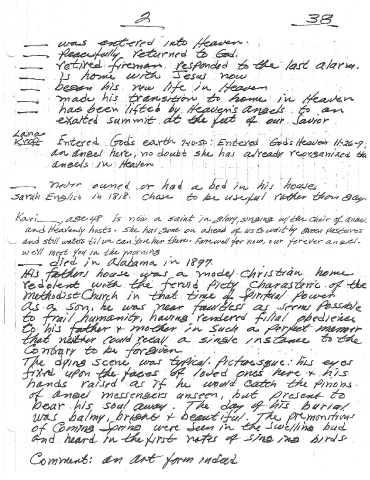 2 38
___ was entered into Heaven
___ Peacefully returned to God.
___ retired fireman responded to the last alarm.
___ is home with Jesus now
___ began his new life in Heaven
___ made his transition to home in Heaven
___ has been lifted by Heaven's angels to an
exalted summit at the feet of our Savior
Lana
Kraft Entered God's earth Entered God's Heaven 11-26-9
an angel here, no doubt she has already reorganized the
angels in Heaven
___ never owned or had a bed in his house
Sarah English in 1818. chose to be useful rather than gay.
Kari ___, age 48 is now a saint in glory, singing w/ the choir of angels
and Heavenly hosts. She has gone on ahead of us to wait by green pastures
and still waters til we can join her there. Farewell for now, our forever angel.
we'll meet you in the morning
___ died in Alabama in 1897.
His fathers house was a model Christian home
redolent with the fervid piety Charasteric of the
Methodist Church in that time of Spiritual power
As a son, he was near faultless as seems possible
to frail humanity, having rendered filial obedience
to his father & mother in such a perfect manner
that neither could recall a single instance to the
Contrary to be forgiven.
The dying scene was typical Picturesque: his eyes
fixed upon the faces of loved ones here & his
hands raised as if he would catch the Pinons
of angel messengers unseen, but present to
bear his soul away. The day of his burial
was balmy, bright & beautiful. The premonitions
of Coming Spring were seen in the swelling bud
and heard in the first notes of singing birds
Comment: an art form indeed